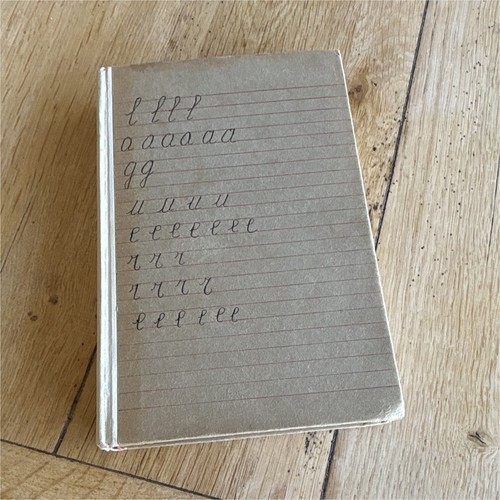 l l l l
a a a a a a
g g
u u u u
e e e e e e e
r r r
r r r r
e e e e e e